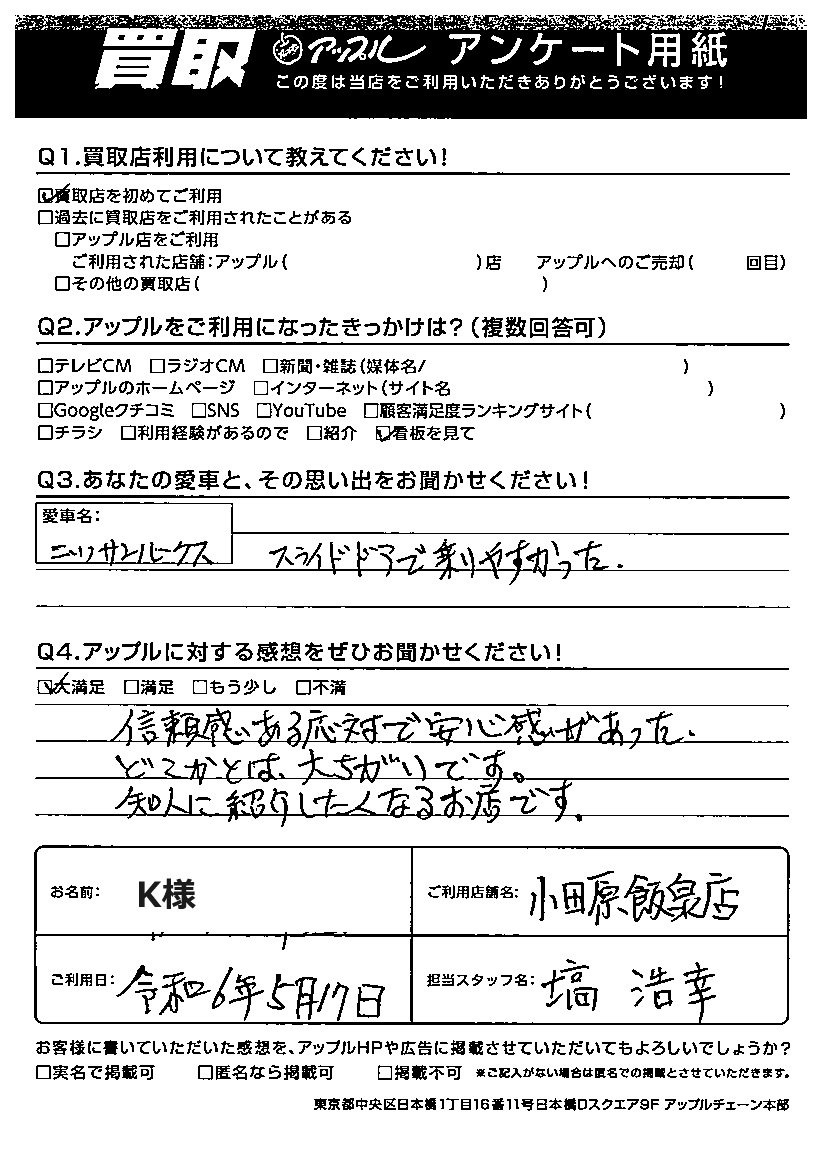 買取 アップル アンケート用紙
この度は当店をご利用いただきありがとうございます!
Q1.買取店利用について教えてください!
☑買取店を初めてご利用
□過去に買取店をご利用されたことがある
□アップル店をご利用
ご利用された店舗:アップル( )店 アップルへのご売却( 回目)
□その他の買取店( )
Q2.アップルをご利用になったきっかけは?(複数回答可)
□テレビCM □ラジオCM □新聞・雑誌(媒体名/ )
□アップルのホームページ □インターネット(サイト名 )
□Googleクチコミ □SNS □YouTube □顧客満足度ランキングサイト( )
□チラシ □利用経験があるので □紹介 ☑看板を見て
Q3.あなたの愛車と、その思い出をお聞かせください!
愛車名:
ニッサンルークス スライドドアで乗りやすかった.
Q4.アップルに対する感想をぜひお聞かせください!
☑大満足 □満足 □もう少し □不満
信頼感ある応対で安心感があった.
どこかとは、大ちがいです。
知人に紹介したくなるお店です.
お名前: K様 ご利用店舗名: 小田原飯泉店
ご利用日: 令和6年5月17日 担当スタッフ名: 塙 浩幸
お客様に書いていただいた感想を、アップルHPや広告に掲載させていただいてもよろしいでしょうか?
□実名で掲載可 □匿名なら掲載可 □掲載不可 ※ご記入がない場合は匿名での掲載とさせていただきます。
東京都中央区日本橋1丁目16番11号日本橋Dスクエア9F アップルチェーン本部